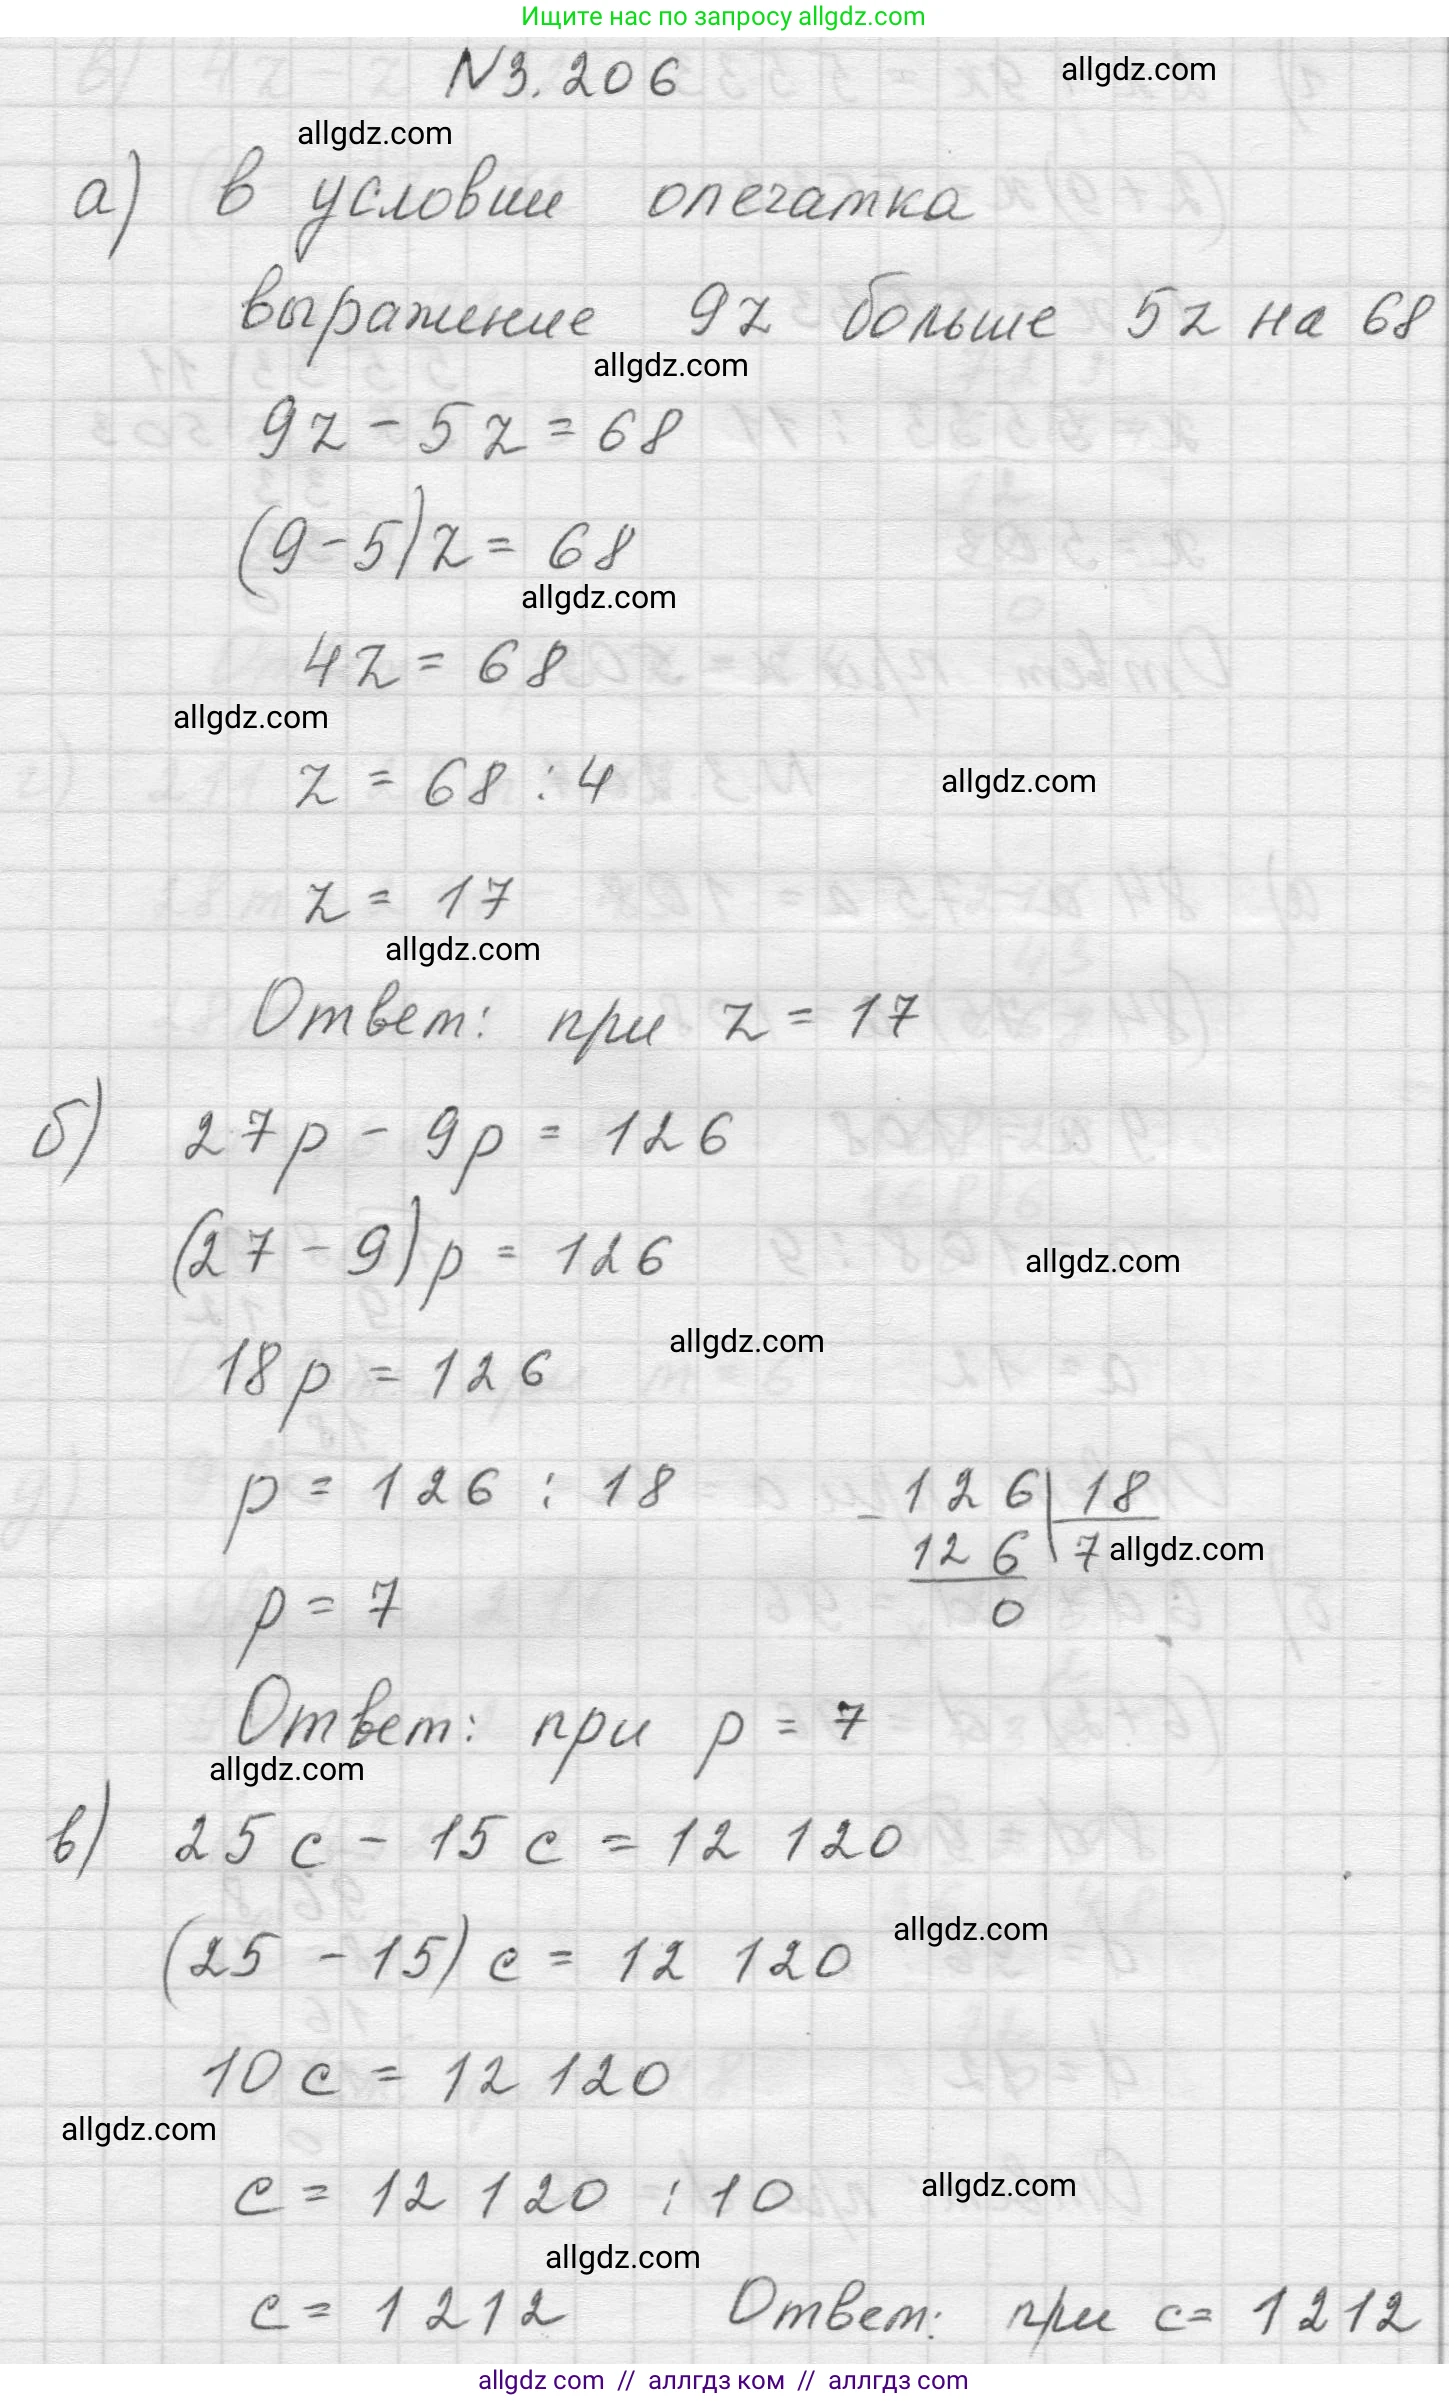 Ищите нас по запросу allgdz.com
N3.206
allgdz.com
allgdz.com
а) в условии опечатка
выражение 9z больше 5z на 68
allgdz.com
9z - 5z = 68
(9-5)z = 68
allgdz.com
4z = 68
allgdz.com
z = 68 : 4
allgdz.com
z = 17
allgdz.com
Ответ: при z = 17
б) 27p - 9p = 126
(27 - 9)p = 126
allgdz.com
allgdz.com
18p = 126
p = 126 : 18
- 126 | 18
126 | 7
allgdz.com
0
p = 7
Ответ: при p = 7
allgdz.com
в) 25c - 15c = 12 120
allgdz.com
(25 - 15)c = 12 120
10c = 12 120
allgdz.com
c = 12 120 : 10
allgdz.com
allgdz.com
c = 1212 Ответ: при c = 1212
allgdz.com // аллгдз ком // аллгдз com